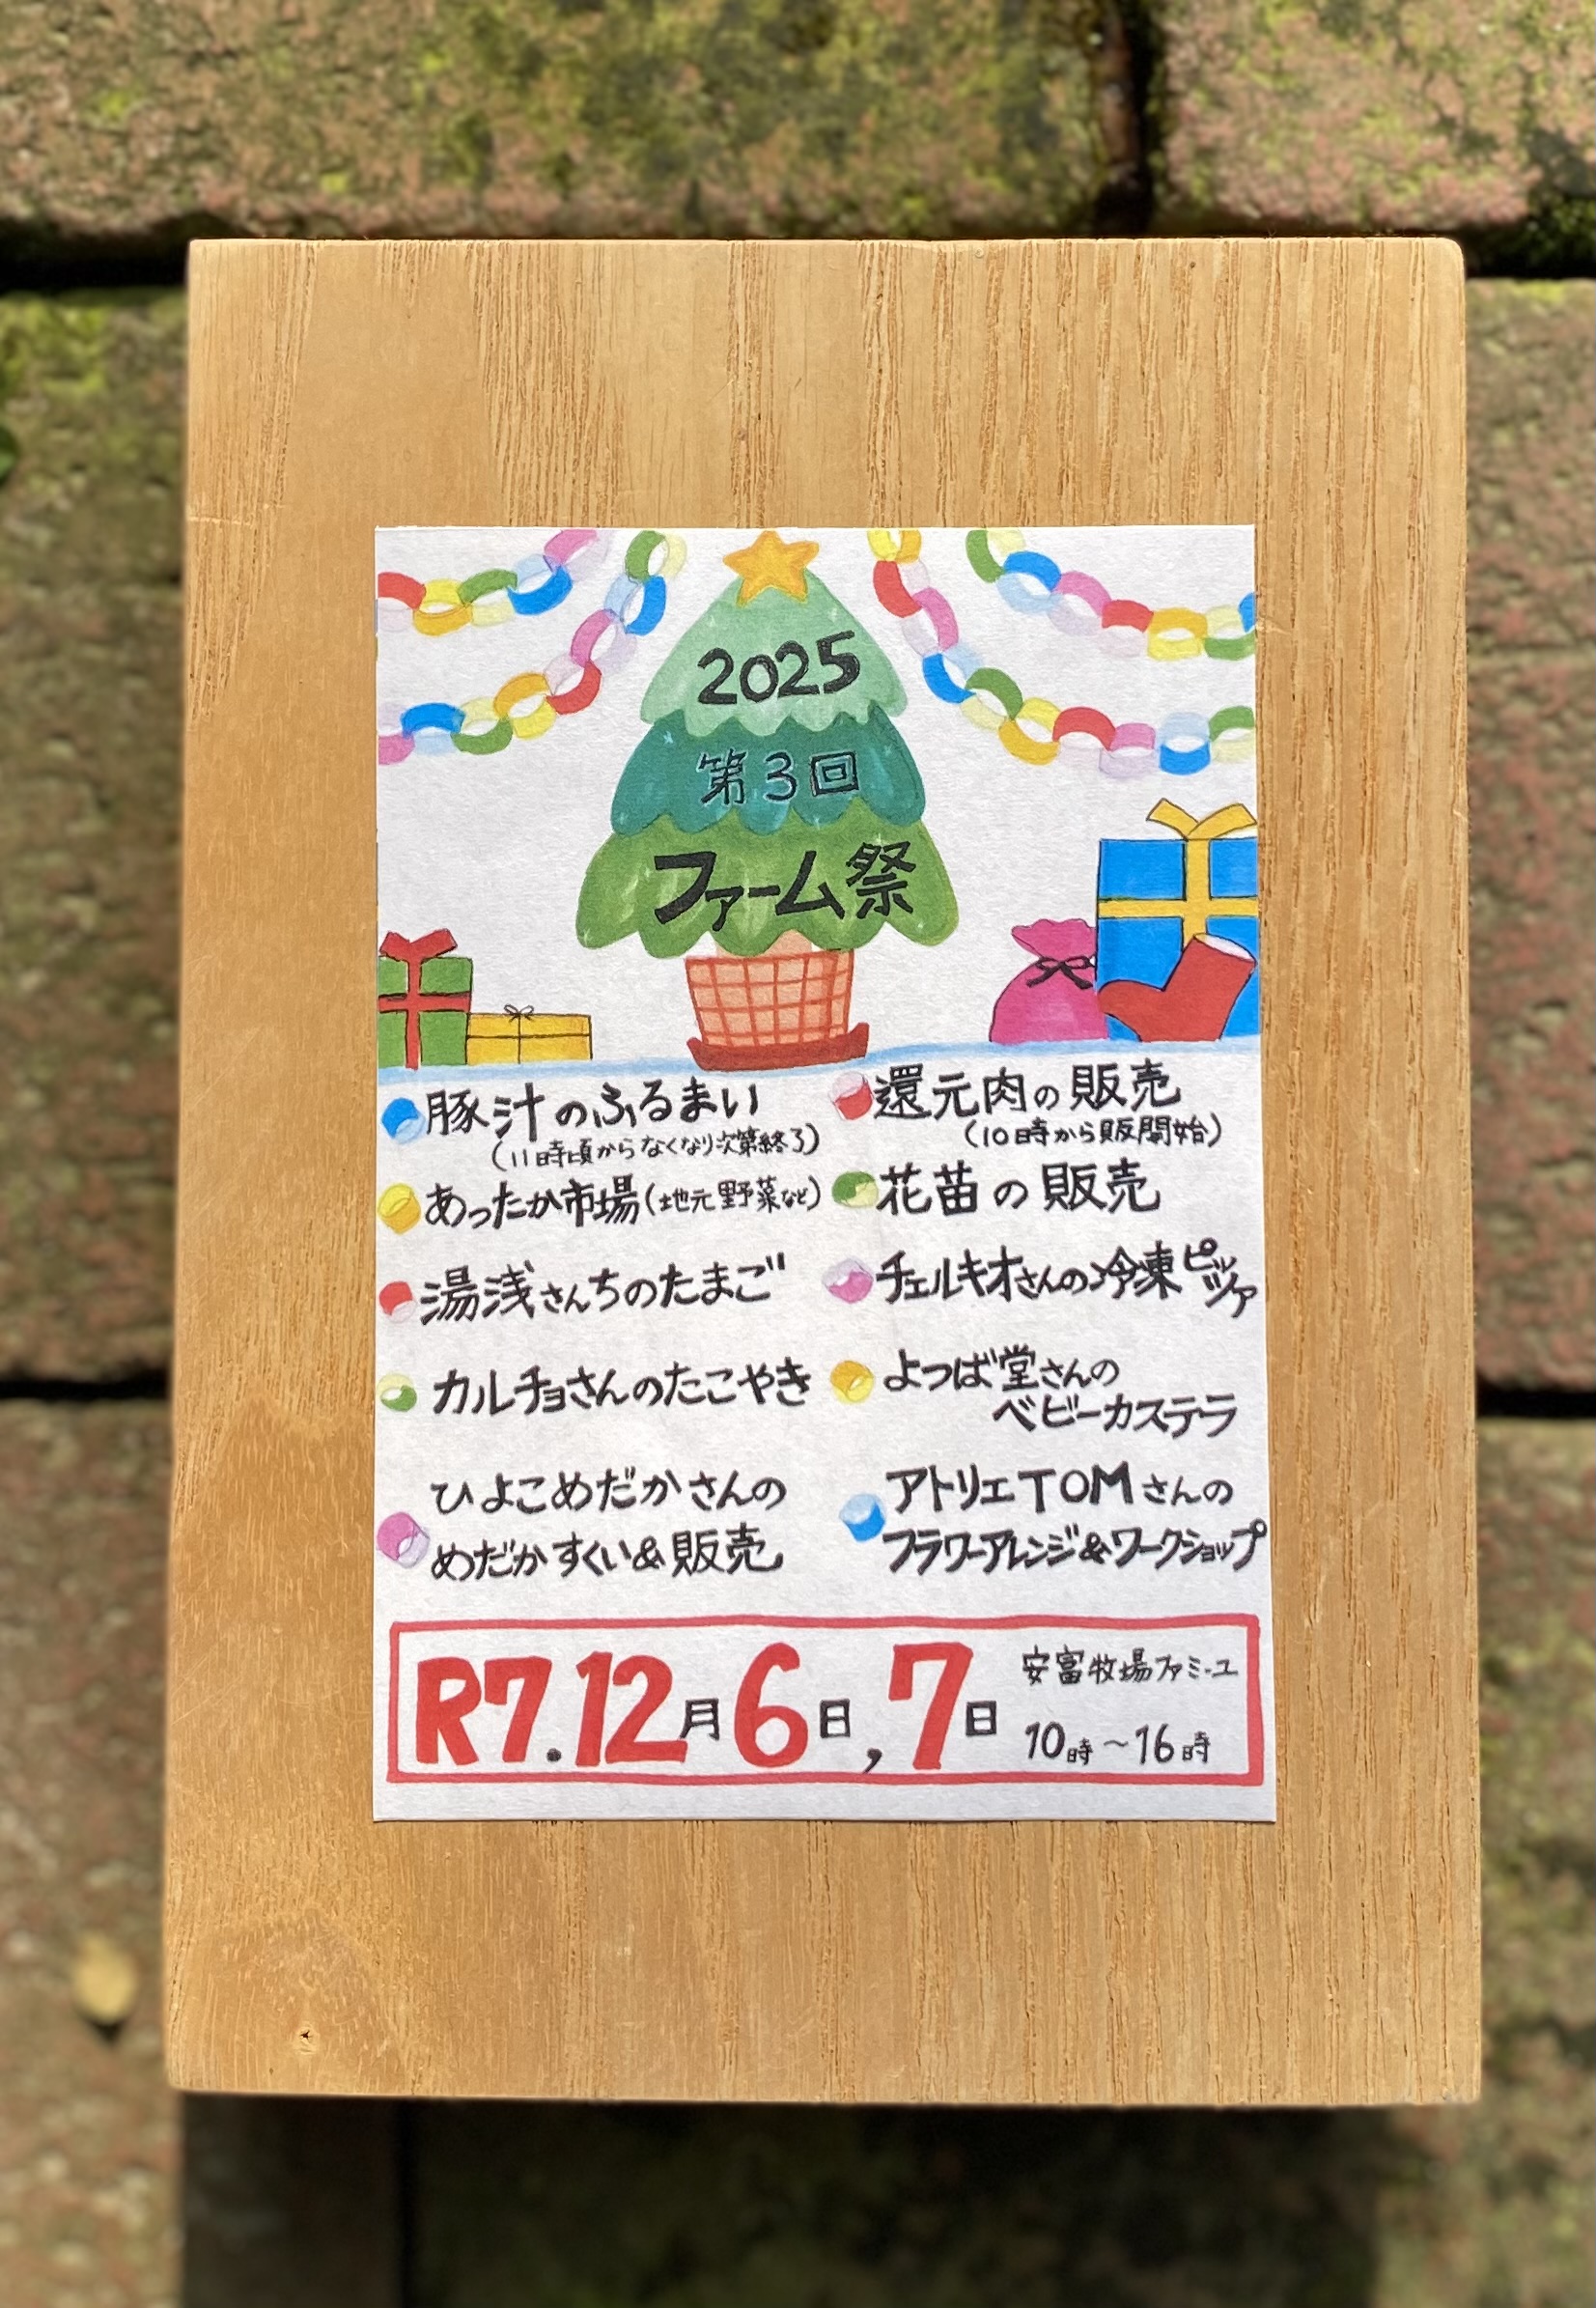 2025
第3回
ファーム祭
豚汁のふるまい
(11時頃からなくなり次第終了)
あったか市場(地元野菜など)
湯浅さんちのたまご
カルチョさんのたこやき
ひよこめだかさんの
めだかすくい&販売
還元肉の販売
(10時から販売開始)
花苗の販売
チェルキオさんの冷凍ピッツァ
よつば堂さんの
ベビーカステラ
アトリエTOMさんの
フラワーアレンジ&ワークショップ
R7.12月6日,7日
安富牧場ファミーユ
10時~16時